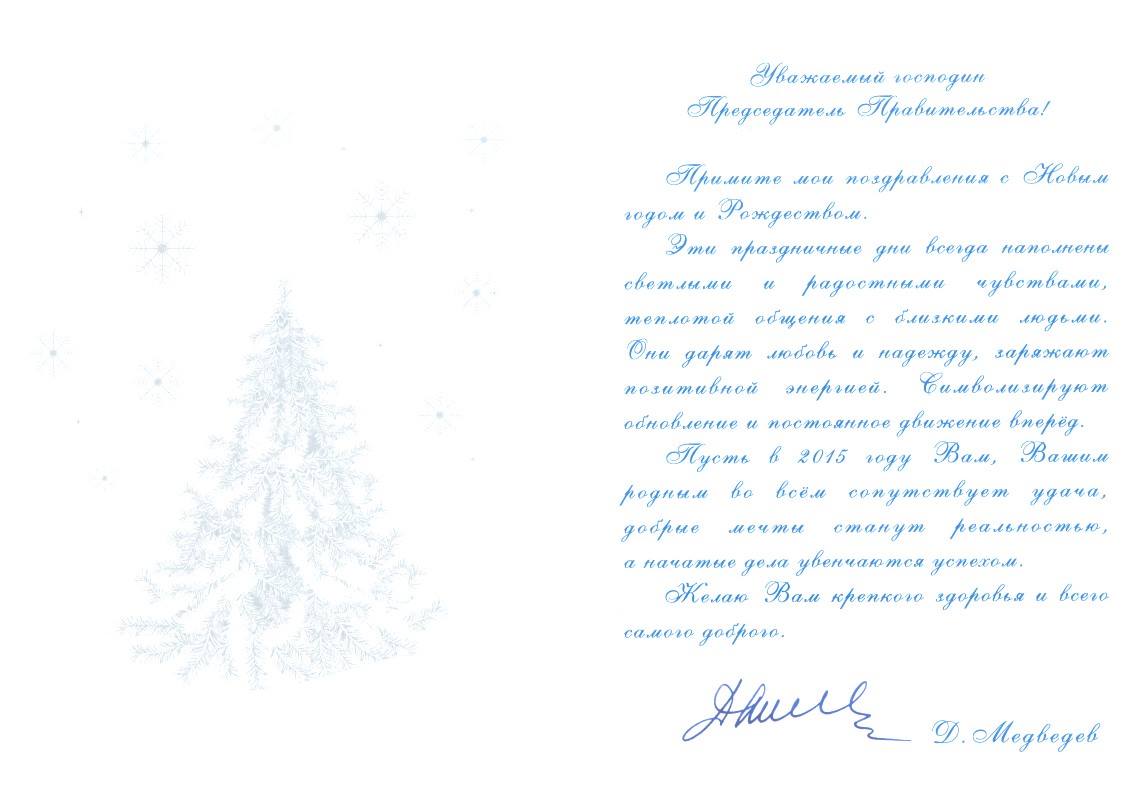 Уважаемый господин
Председатель Правительства!
Примите мои поздравления с Новым
годом и Рождеством.
Эти праздничные дни всегда наполнены
светлыми и радостными чувствами,
теплотой общения с близкими людьми.
Они дарят любовь и надежду, заряжают
позитивной энергией. Символизируют
обновление и постоянное движение вперёд.
Пусть в 2015 году Вам, Вашим
родным во всём сопутствует удача,
добрые мечты станут реальностью,
а начатые дела увенчаются успехом.
Желаю Вам крепкого здоровья и всего
самого доброго.
Д. Медведев